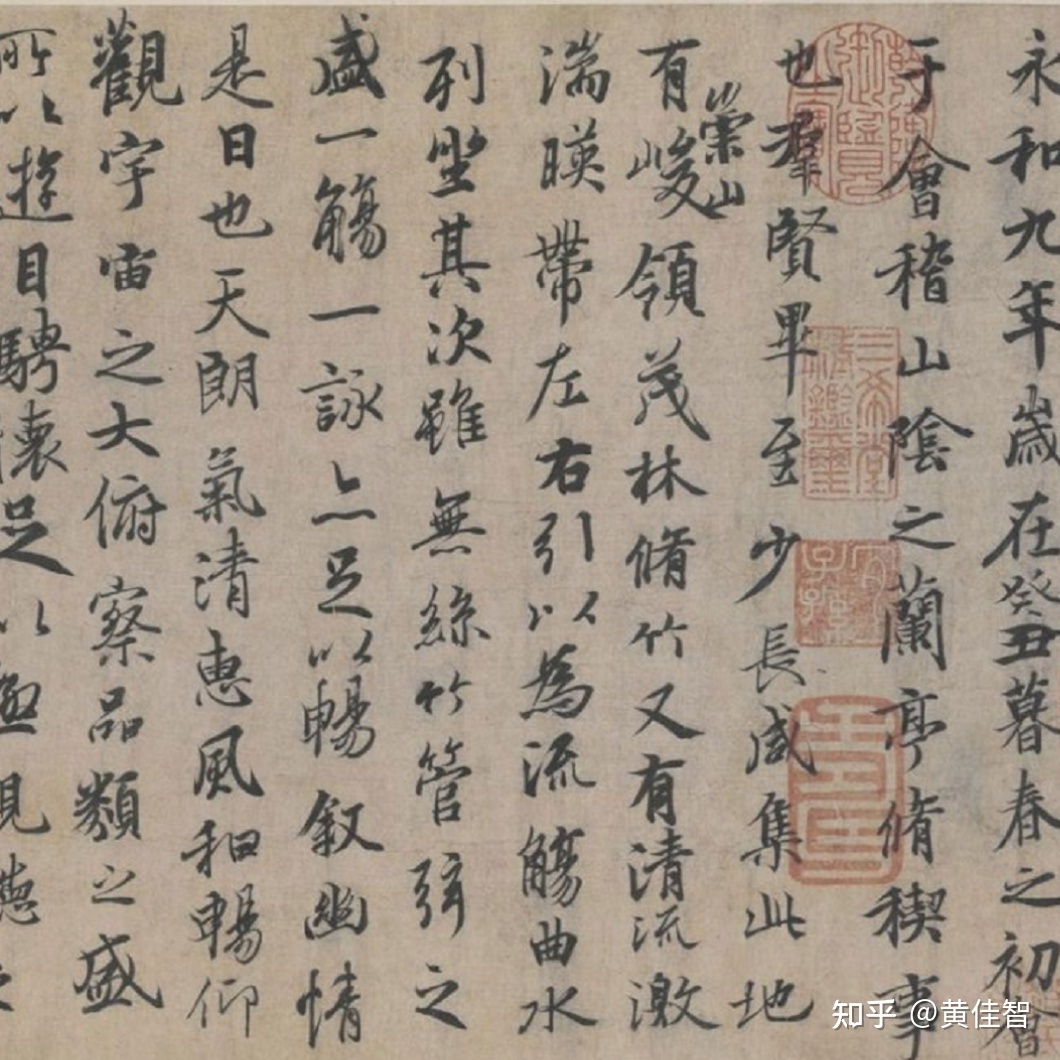 永和九年歲在癸丑暮春之初會
于會稽山陰之蘭亭脩稧事
也羣賢畢至少長咸集此地
有崇山峻領茂林脩竹又有清流激
湍暎帶左右引以為流觴曲水
列坐其次雖無絲竹管弦之
盛一觴一詠亦足以暢叙幽情
是日也天朗氣清惠風和暢仰
觀宇宙之大俯察品類之盛
所以遊目騁懷足以極視聽之
知乎 @黄佳智